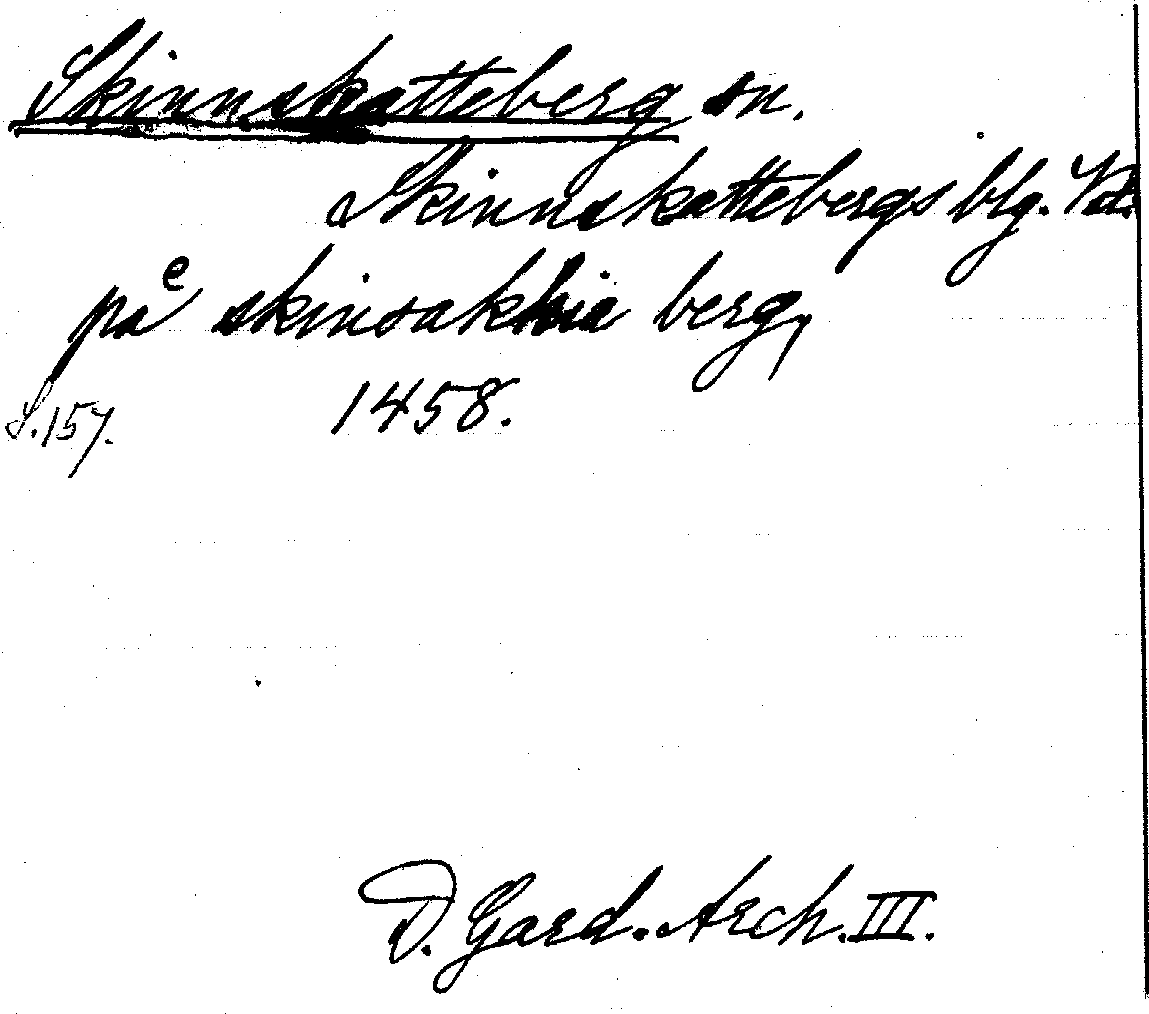 Skinnskatteberg sn.
Skinnskattebergs blg. Vstm.
paͤ skinsakkia berg,
S. 157. 1458.
D. Gard. Arch. III.